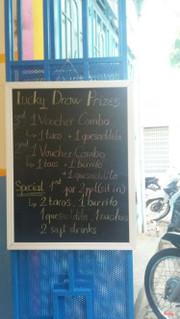 Lucky Draw Prizes
3rd 1 Voucher Combo
↳ 1 taco + 1 quesadilla
2nd 1 Voucher Combo
↳ 1 taco + 1 burrito
+ 1 quesadilla
Special 1st for 2 ppl (sit in)
↳ 2 tacos, 1 burrito
1 quesadilla, 1 nachos
2 soft drinks